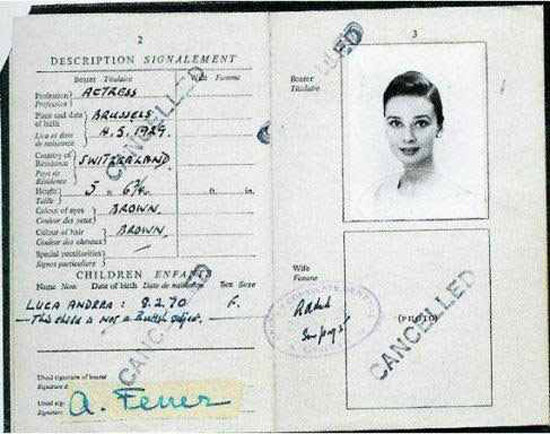 2
DESCRIPTION SIGNALEMENT
Bearer Titulaire Wife Femme
Profession ACTRESS
Profession
Place and date of birth BRUSSELS
Lieu et date de naissance 4.5.1929.
Country of Residence SWITZERLAND
Pays de Résidence
Height 5 ft. in.
Taille
Colour of eyes BROWN
Couleur des yeux
Colour of hair BROWN.
Couleur des cheveux
Special peculiarities
Signes particuliers
CANCELLED
CHILDREN ENFANTS
Name Nom Date of birth Date de naissance Sex Sexe
LUCA ANDREA : 8.2.70
This child is not a British subject.
CANCELLED
Usual signature of bearer
Signature
Usual
Signature
A. Ferrer
3
Bearer
Titulaire
Wife
Femme
Added
(PHOTO)
CANCELLED